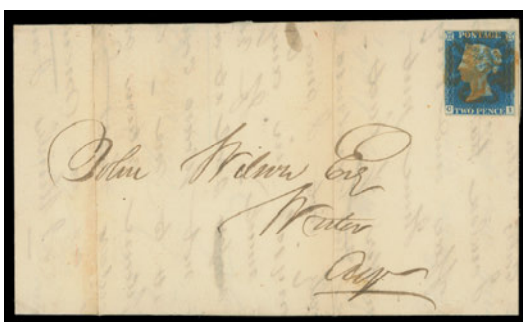 POSTAGE
TWO PENCE
John Wilson Esq
Writer
Ayr